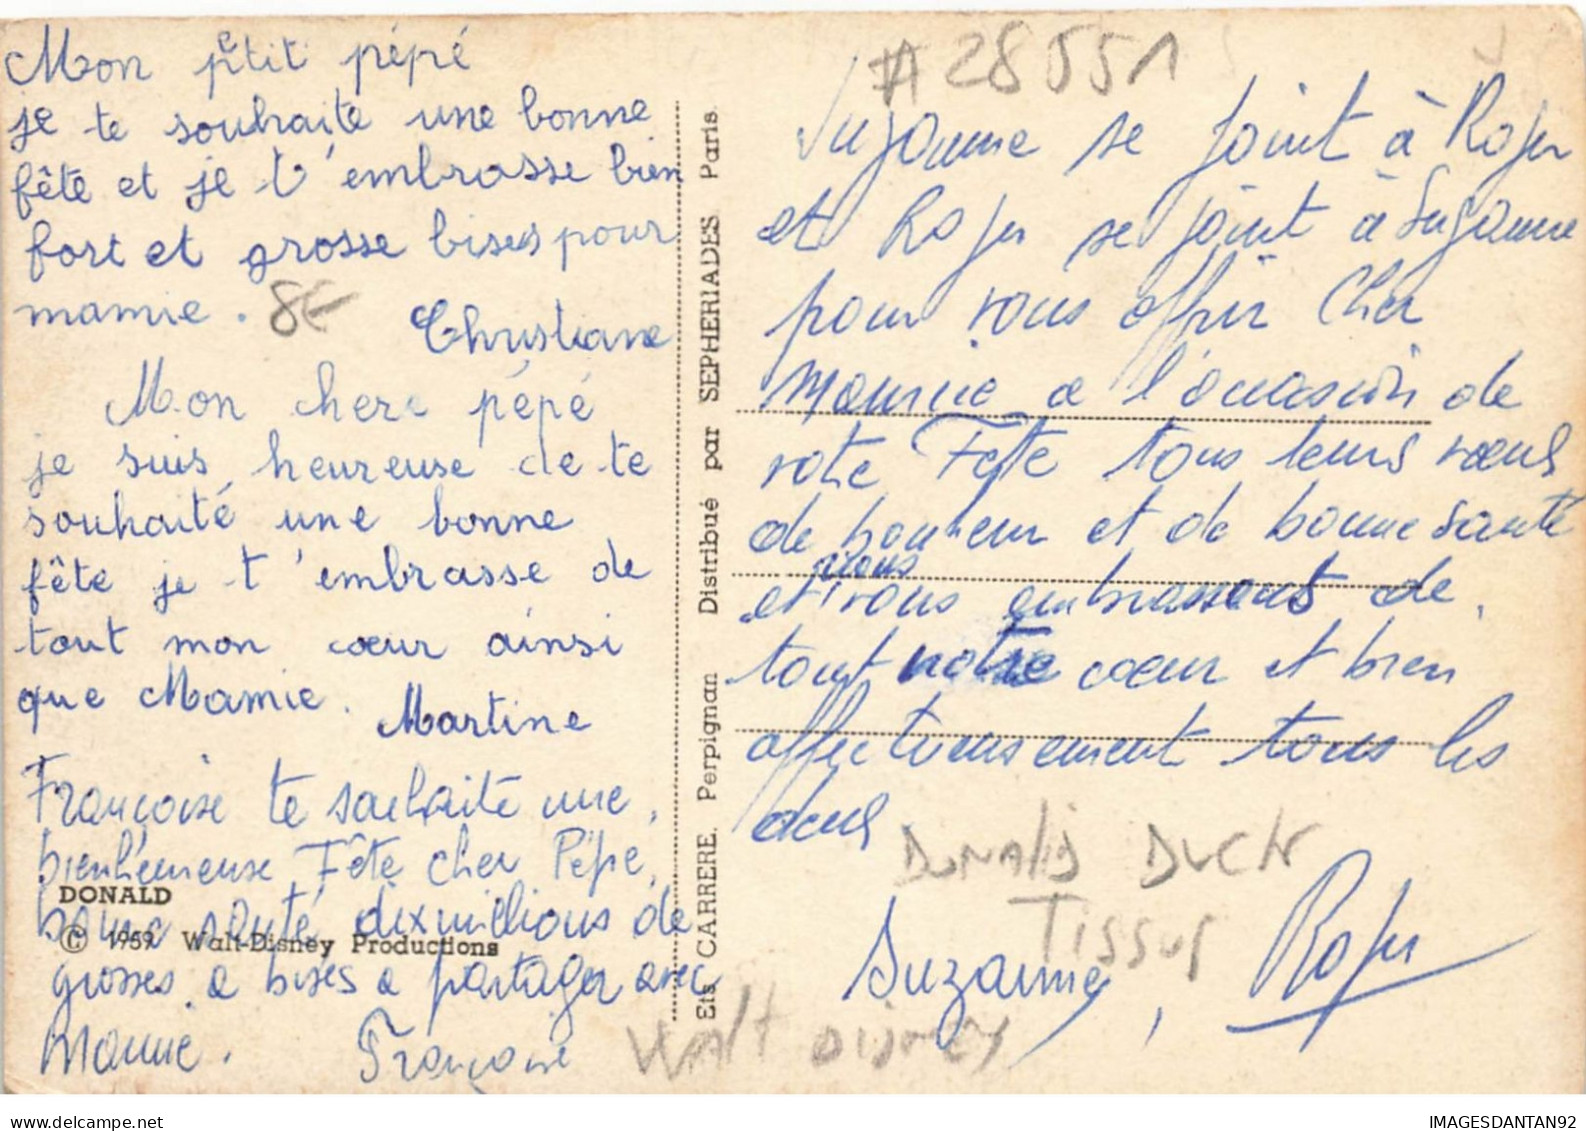 Mon p'tit pépé
je te souhaite une bonne
fête et je t'embrasse bien
fort et grosse bises pour
mamie.
8€
Christiane
Mon chere pépé
je suis heureuse de te
souhaité une bonne
fête je t'embrasse de
tout mon cœur ainsi
que Mamie.
Martine
Françoise te souhaite une
bienheureuse Fête cher Pépé,
bonne santé, dix millions de
grosses a bises a partager avec
Mamie.
Françoise
DONALD
© 1959 Walt-Disney Productions
Ets CARRERE. Perpignan Distribué par SEPHERIADES Paris.
#28551
Suzanne se joint à Roger
et Roger se joint à Suzanne
pour vous offrir Cher
Maurice a l'occasion de
votre Fete tous leurs vœux
de bonheur et de bonne santé
et nous vous embrassons de
tout notre cœur et bien
affectueusement tous les
deux
Suzanne, Roger
DONALD DUCK
TISSUS
WALT DISNEY
delcampe.net
IMAGESDANTAN92